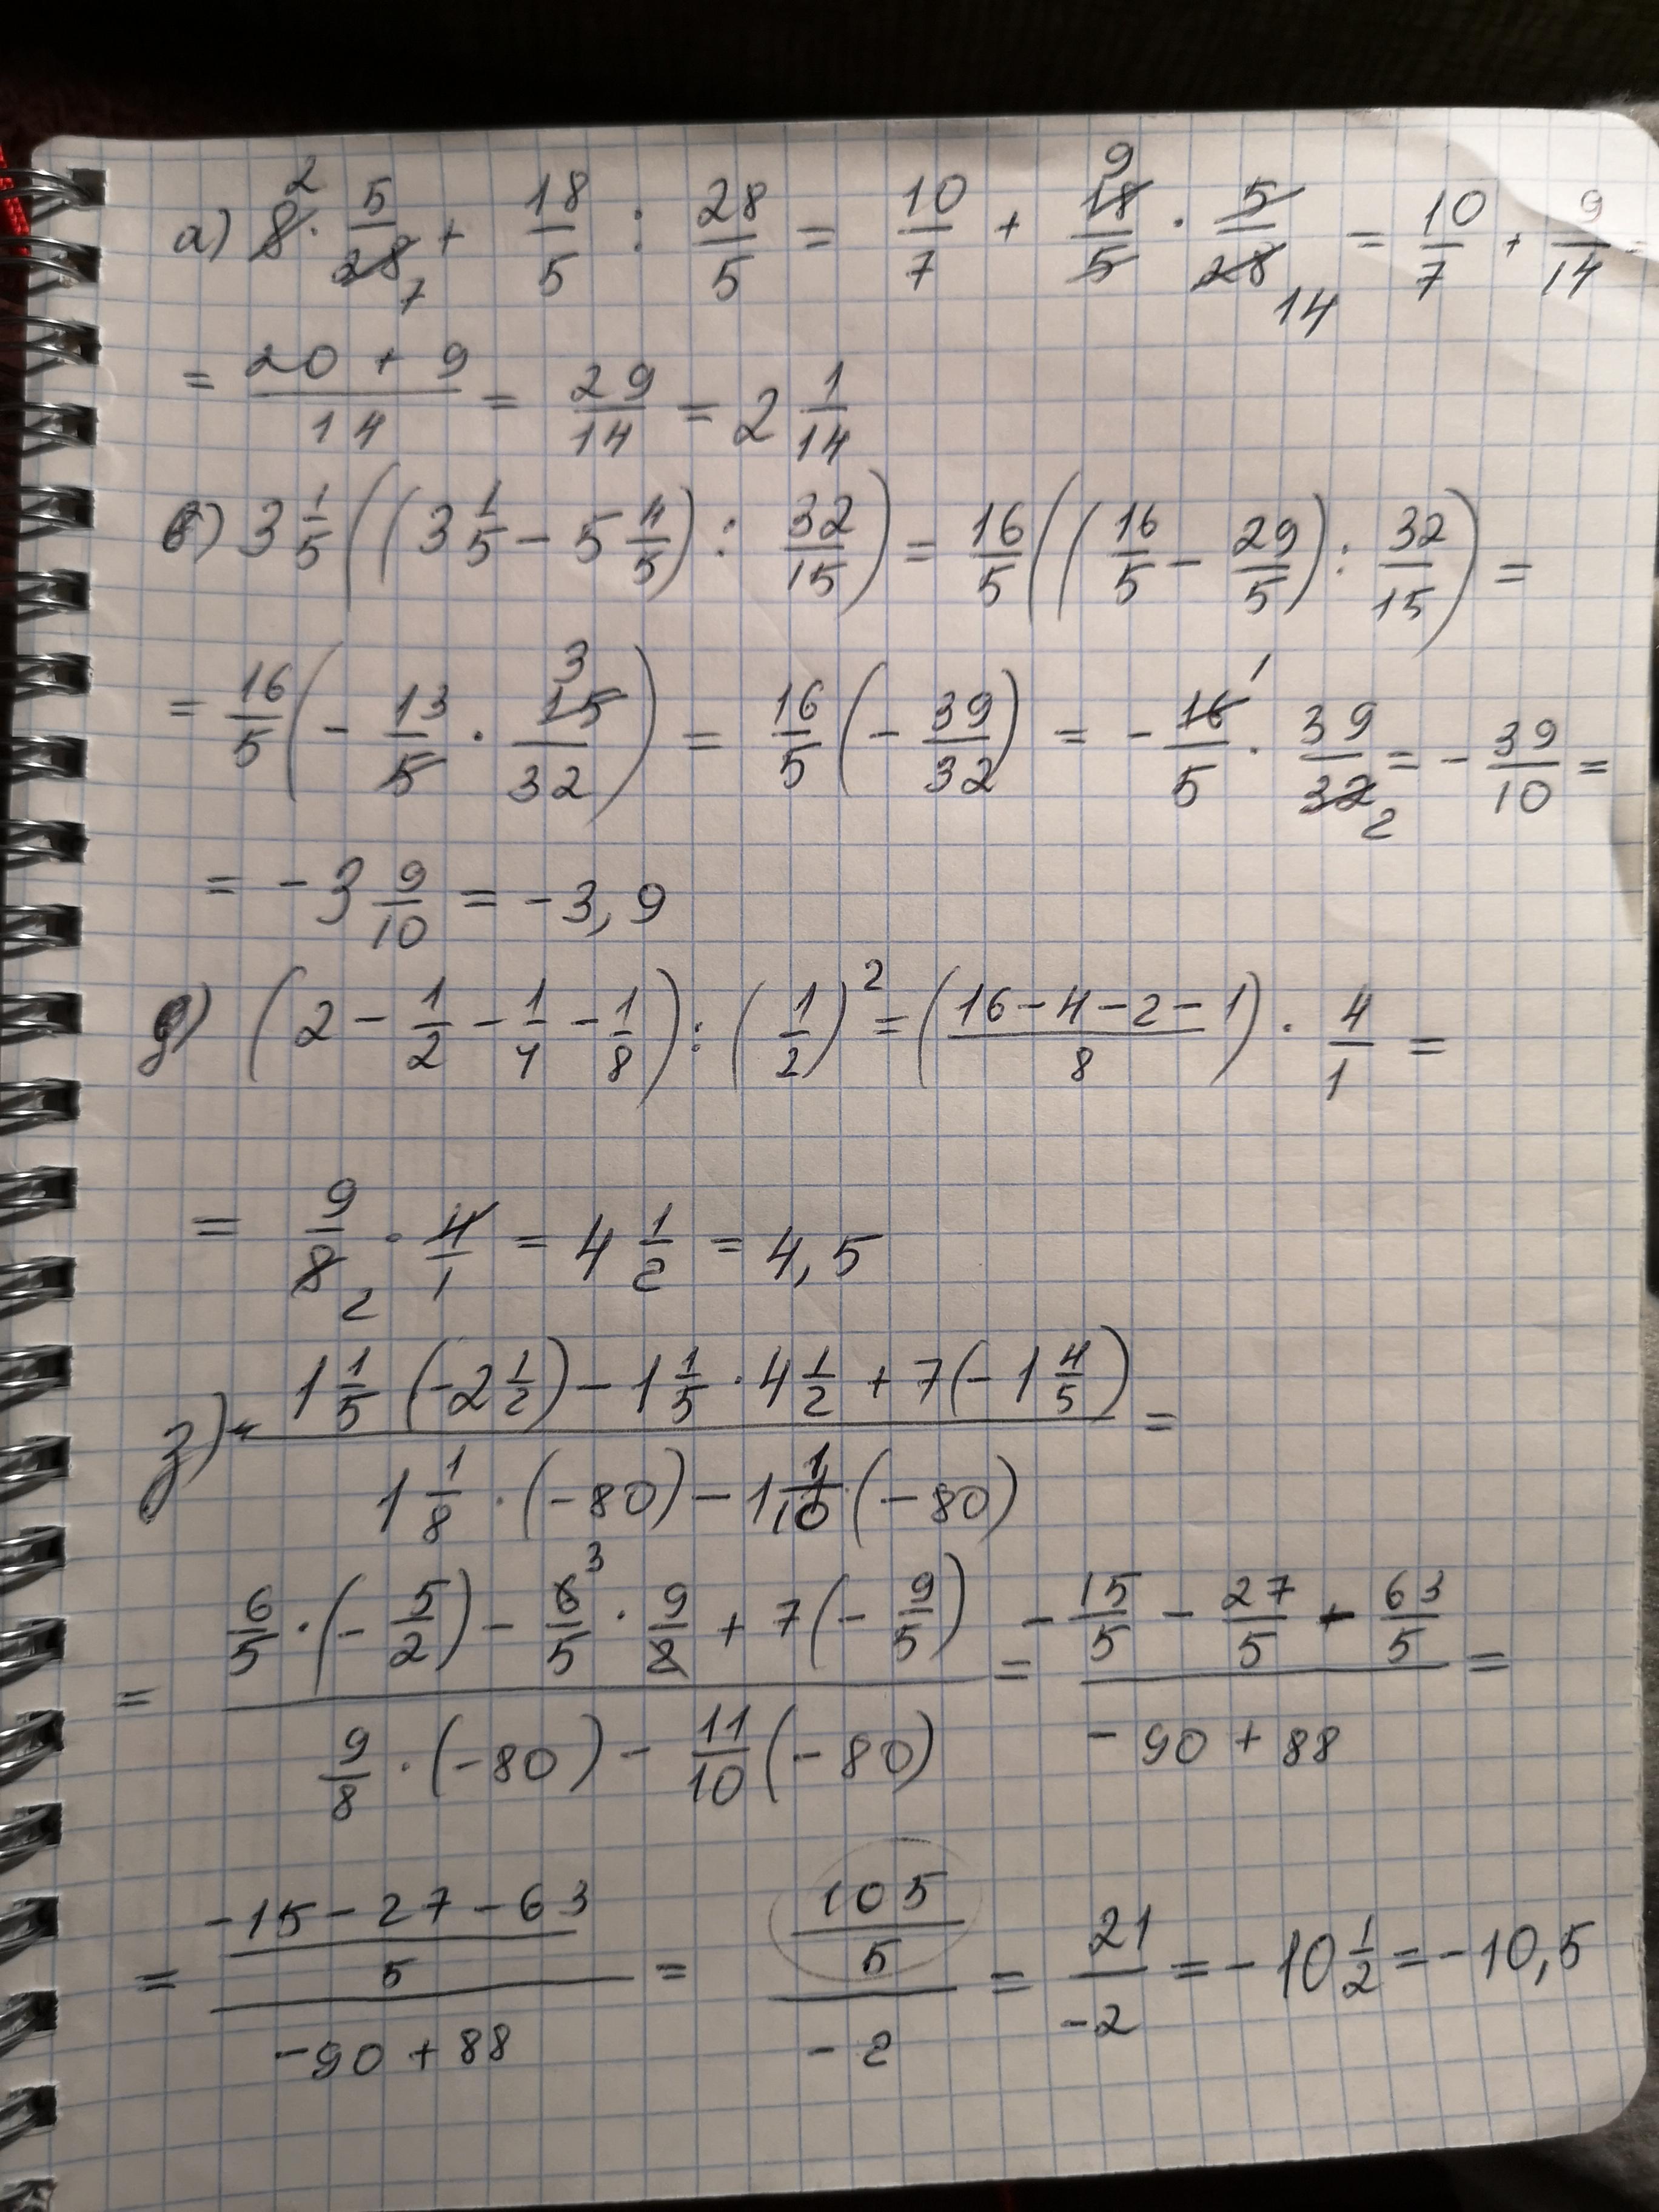 а) 8² · 5/28₇ + 18/5 : 28/5 = 10/7 + 18⁹/5 · 5/28₁₄ = 10/7 + 9/14 =
= (20 + 9)/14 = 29/14 = 2 1/14
в) 3 1/5 ((3 1/5 − 5 4/5) : 32/15) = 16/5 ((16/5 − 29/5) : 32/15) =
= 16/5 (− 13/5 · 15³/32) = 16/5 (− 39/32) = − 16¹/5 · 39/32₂ = − 39/10 =
= − 3 9/10 = − 3,9
д) (2 − 1/2 − 1/4 − 1/8) : (1/2)² = ((16 − 4 − 2 − 1)/8) · 4/1 =
= 9/8₂ · 4/1 = 4 1/2 = 4,5
з) (1 1/5 (−2 1/2) − 1 1/5 · 4 1/2 + 7(−1 4/5)) / (1 1/8 · (−80) − 1 1/10 (−80)) =
= (6/5 · (− 5/2) − 6³/5 · 9/2 + 7(− 9/5)) / (9/8 · (−80) − 11/10 (−80)) = (− 15/5 − 27/5 − 63/5) / (− 90 + 88) =
= ((−15 − 27 − 63)/5) / (−90 + 88) = (105/5) / (− 2) = 21/−2 = − 10 1/2 = − 10,5